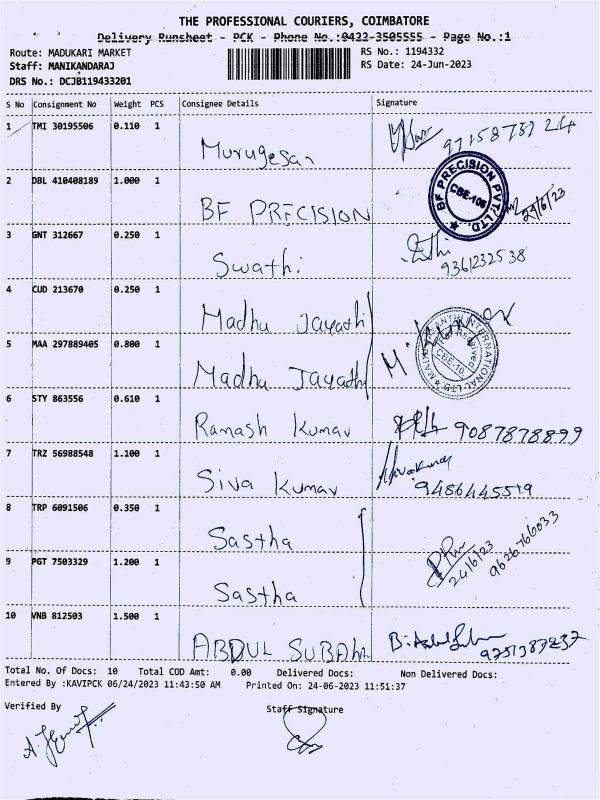 THE PROFESSIONAL COURIERS, COIMBATORE
Delivery Runsheet - PCK - Phone No.:0422-3505555 - Page No.:1
Route: MADUKARI MARKET
Staff: MANIKANDARAJ
DRS No.: DCJB119433201
RS No.: 1194332
RS Date: 24-Jun-2023
S No Consignment No Weight PCS Consignee Details Signature
1 TMI 30195506 0.110 1 Murugesan
2 DBL 410408189 1.000 1 BF PRECISION
BF PRECISION PVT. LTD.
CBE-105
24/6/23
3 GNT 312667 0.250 1 Swathi
9361232538
4 CUD 213670 0.250 1 Madhu Jayathi
5 MAA 297889405 0.800 1 Madhu Jayathi
INTERNATIONAL LTD.
CBE-10
6 STY 863556 0.610 1 Ramash Kumar 9087878899
7 TRZ 56988548 1.100 1 Siva Kumar Sivakumar
9486445519
8 TRP 6091506 0.350 1 Sastha
9 PGT 7503329 1.200 1 Sastha
24/6/23
9626766033
10 VNB 812503 1.500 1 ABDUL SUBAHA
Total No. Of Docs: 10 Total COD Amt: 0.00 Delivered Docs: Non Delivered Docs:
Entered By :KAVIPCK 06/24/2023 11:43:50 AM Printed On: 24-06-2023 11:51:37
Verified By Staff Signature